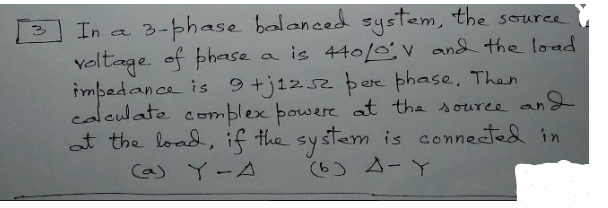 3 In a 3-phase balanced system, the source
voltage of phase a is 440∠0° V and the load
impedance is 9+j12Ω per phase. Then
calculate complex powere at the source and
at the load, if the system is connected in
(a) Y-Δ (b) Δ-Y